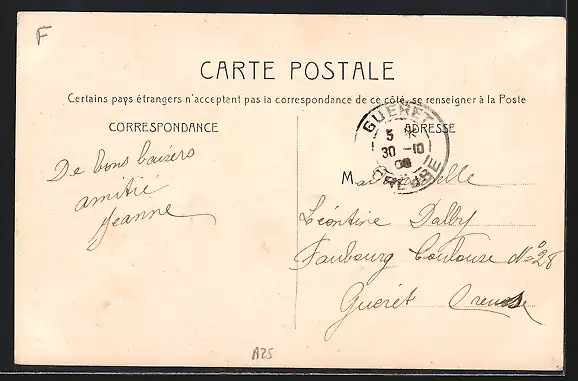 F
CARTE POSTALE
Certains pays étrangers n'acceptant pas la correspondance de ce côté, se renseigner à la Poste
CORRESPONDANCE
ADRESSE
GUERET
5 *
30 -10
08
CREUSE
De bons baisers
amitié
Jeanne
Mademoiselle
Léontine Dalby
Faubourg Toulouse No 28
Guéret Creuse
A25